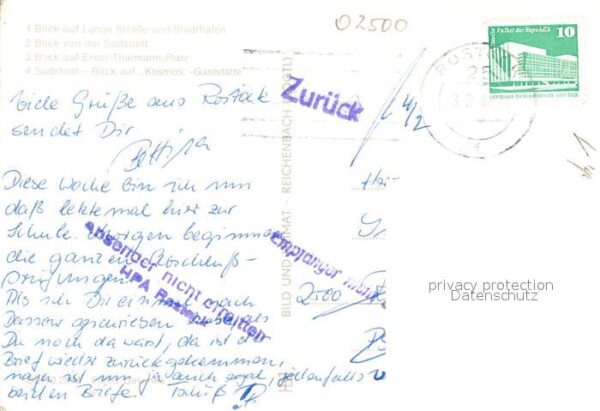 02500
1 Blick auf Lange Straße und Stadthafen
2 Blick von der Südstadt
3 Blick auf Ernst-Thälmann-Platz
4 Südstadt – Blick auf „Kosmos"-Gaststätte
Berlin Palast der Republik
10
DEUTSCHE DEMOKRATISCHE REPUBLIK
ROSTOCK
25
Zurück
4/2
Viele Grüße aus Rostock
sendet Dir
Bettina
Diese Woche bin ich nun
daß letzte mal hier zur
Schule. Morgen beginnen
die ganzen Abschluß-
prüfungen.
Als ich Dir einmal nach
Dassow geschrieben habe als
Du noch da warst, da ist d
Brief wieder zurückgekommen,
ist nun ja auch egal, jedenfalls
beiden Briefe. Tschüß
Absender nicht ermittelt
HPA Rostock
Empfänger
BILD UND HEIMAT · REICHENBACH (VOGTL)
2500
1
privacy protection
Datenschutz